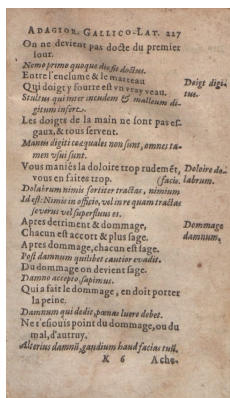 ADAGIOR. GALLICO-LAT. 227
On ne devient pas docte du premier
iour.
Nemo primo quoque die sit doctus.
Entre l'enclume & le marteau
Qui doigt y fourre est vn vray veau.
Doigt digi-
tus.
Stultus qui inter incudem & malleum di-
gitum insert.
Les doigts de la main ne sont pas es-
gaux, & tous servent.
Manus digiti coæquales non sunt, omnes ta-
men vsui sunt.
Vous maniés la doloire trop rudemēt,
vous en faites trop. (facis.
Doloire do-
labrum.
Dolabrum nimis fortiter tractas, nimium
Id est: Nimis in officio, vel in re quam tractas
severus vel superfluus es.
Apres detriment & dommage,
Chacun est accort & plus sage.
Dommage
damnum.
Apres dommage, chacun est sage.
Post damnum quilibet cautior evadit.
Du dommage on devient sage.
Damno accepto sapimus.
Qui a fait le dommage, en doit porter
la peine.
Damnum qui dedit, pœnas luere debet.
Ne t'esiouis point du dommage, ou du
mal, d'autruy.
Alterius damnū, gaudium haud facias tuū.
K 6 Ache-